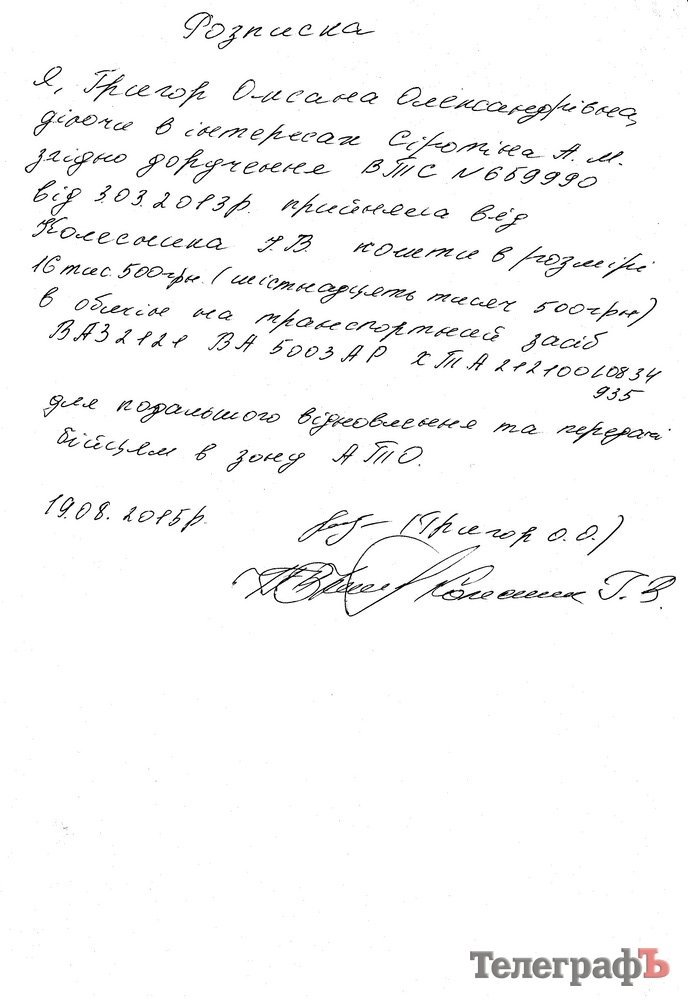 Розписка
Я, Григор Оксана Олександрівна,
діючи в інтересах Сіротіна А. М.
згідно доручення ВТС №659990
від 3.03.2013р. прийняла від
Колесника Г.В. кошти в розмірі
16 тис 500грн. (шістнадцять тисяч 500грн)
в обмін на транспортний засіб
ВАЗ 2121 ВА 5003 АР ХТА 212100L0834
935
для подальшого відновлення та передачі
бійцям в зону АТО.
19.08.2015р. (Григор О.О.)
Колесник Г.В.
ТелеграфЪ